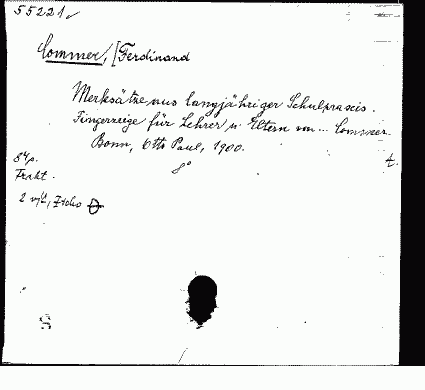 55221
Commer, [Ferdinand
Merksätze aus langjähriger Schulpraxis.
Fingerzeige für Lehrer u. Eltern von ... Commer.
Bonn, Otto Paul, 1900.
8°
t.
84 p.
Frakt.
2